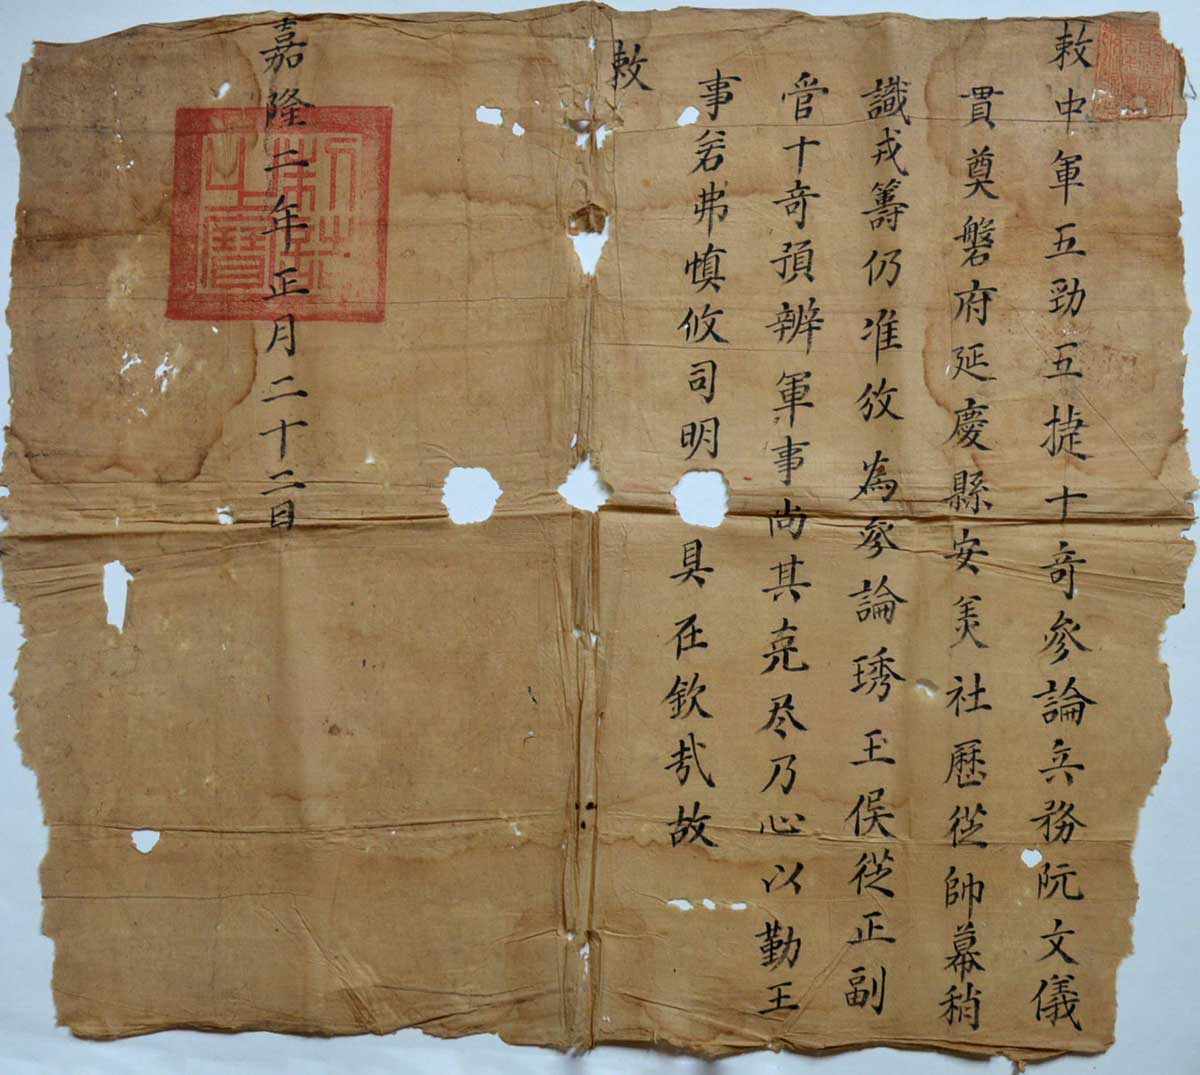 敕中軍五勁五捷十竒參論兵務阮文儀
貫奠磐府延慶縣安美社歷從帥幕稍
識戎籌仍准攽為參論琇玉侯從正副
管十竒預辦軍事尚其克尽乃心以勤王
事若弗慎攸司明具在欽哉故
敕
嘉隆二年正月二十二日
制誥之寶